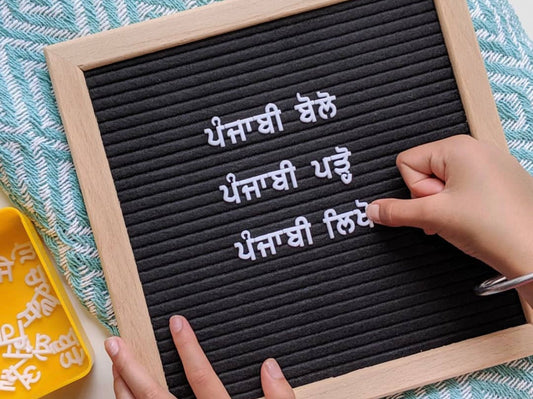 ਪੰਜਾਬੀ ਬੋਲੋ
ਪੰਜਾਬੀ ਪੜ੍ਹੋ
ਪੰਜਾਬੀ ਲਿਖੋ